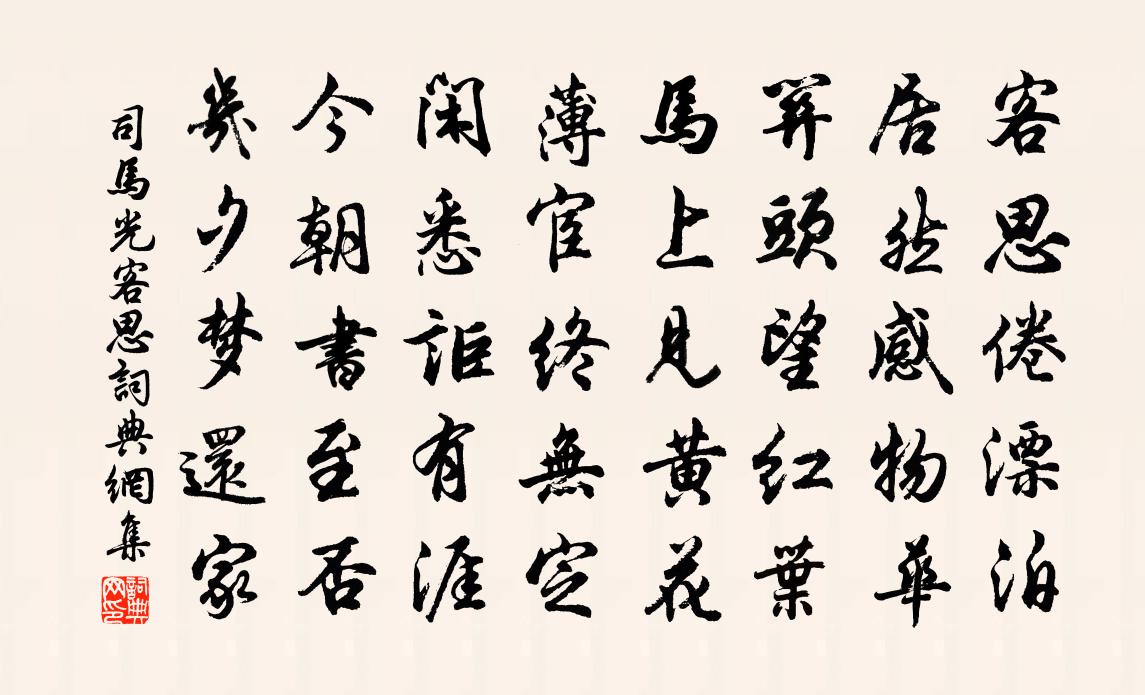 客思倦漂泊
居然感物華
笄頭望红葉
馬上見黄花
薄宦終無定
閑悉詎有涯
今朝書至否
幾夕梦還家
司馬光客思詞典網集
詞典网印